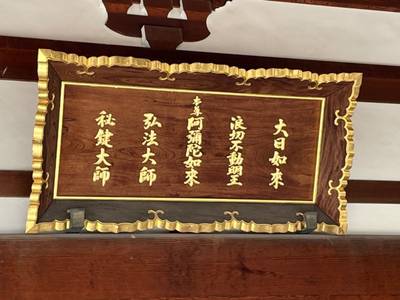 大日如来
浪切不動明王
本尊阿彌陀如来
弘法大師
秘鍵大師